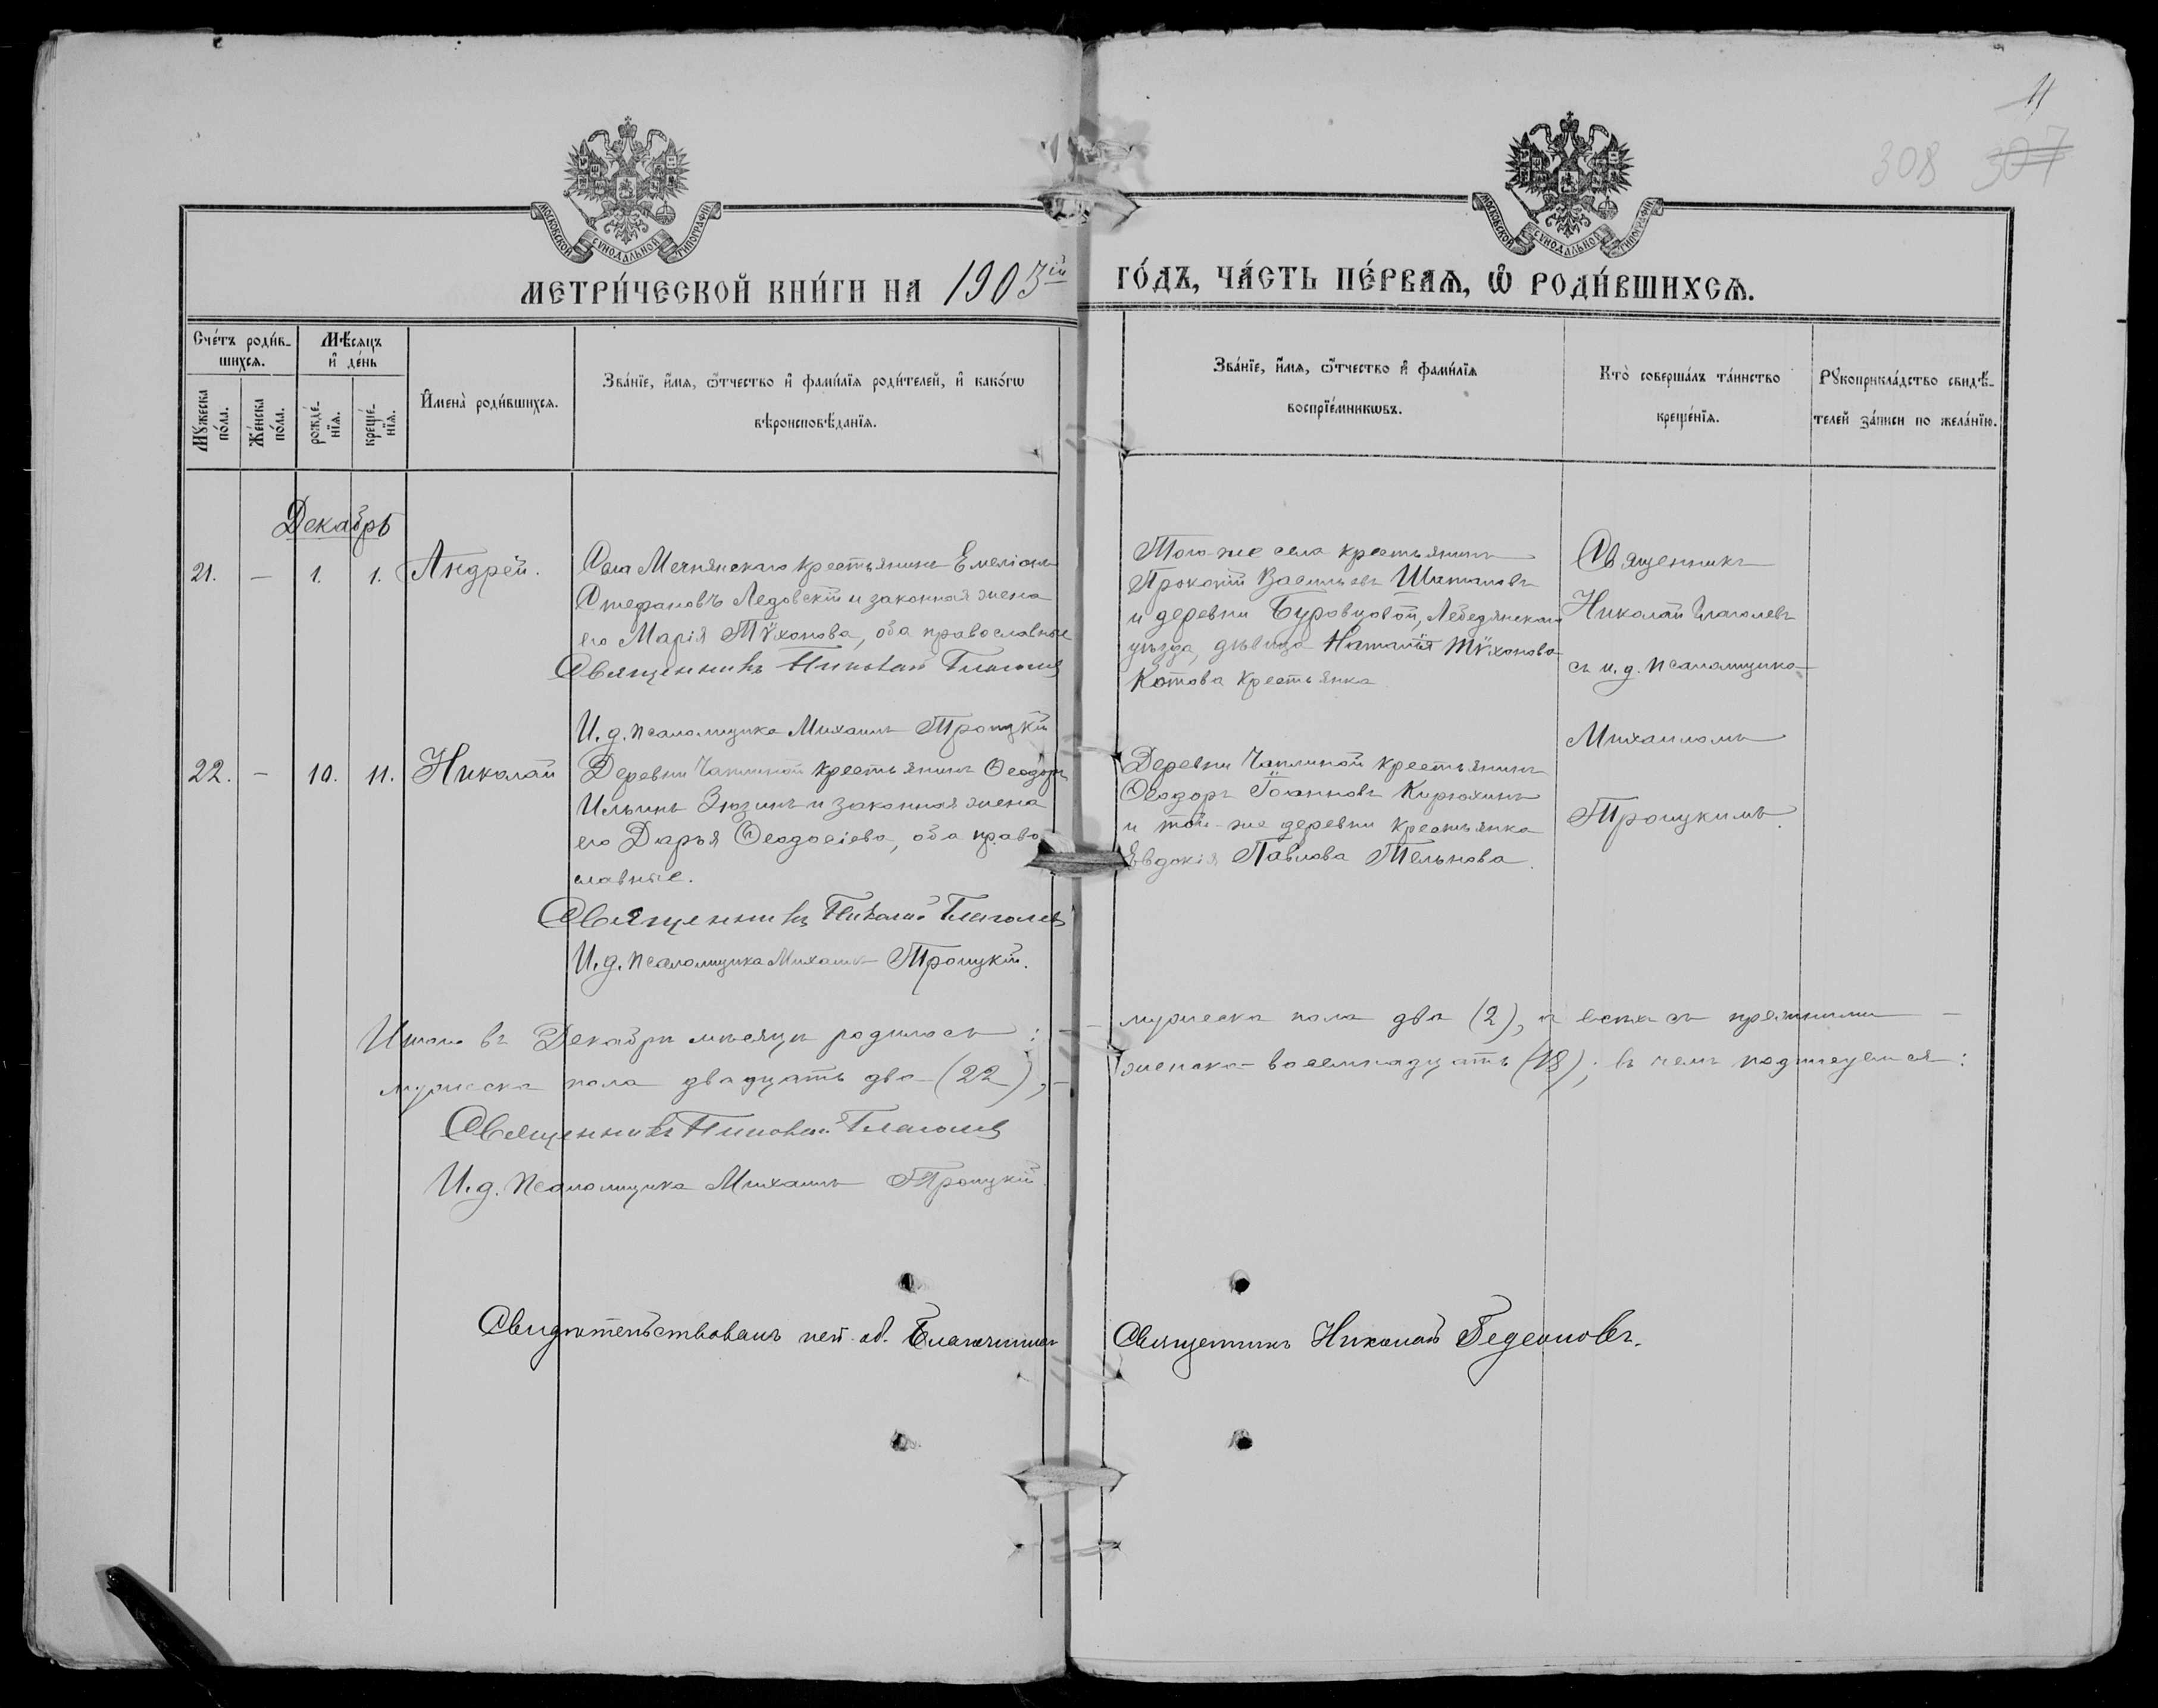 11
308 307
МОСКОВСКОЙ СѴНОДАЛЬНОЙ ТИПОГРАФІИ
МОСКОВСКОЙ СѴНОДАЛЬНОЙ ТИПОГРАФІИ
МЕТРИ́ЧЕСКОЙ КНИ́ГИ НА 1903ій ГО́ДЪ, ЧА́СТЬ ПЕ́РВАѦ, Ѽ РОДИ́ВШИХСѦ.
Сче́тъ роди́в-
шихсѧ.
Мѣ́сѧцъ
и҆ де́нь
Мꙋ́жеска
по́ла.
Же́нска
по́ла.
рожде́-
нїѧ.
креще́-
нїѧ.
И҆мена̀ роди́вшихсѧ.
Зва́нїе, и҆́мѧ, ѻ҆́тчество и҆ фами́лїѧ роди́телей, и҆ како́гѡ
вѣроисповѣ́данїѧ.
Зва́нїе, и҆́мѧ, ѻ҆́тчество и҆ фами́лїѧ
воспрїе́мникѡвъ.
Кто̀ соверша́лъ та́инство
креще́нїѧ.
Рꙋкоприкла́дство свидѣ́-
телей за́писи по жела́нїю.
Декабрь
21. — 1. 1. Андрей.
Села Мечнянскаго крестьянинъ Емеліанъ
Стефановъ Ледовскій и законная жена
его Марія Тѵхонова, оба православные
Священникъ Николай Глаголевъ
И.д. псаломщика Михаилъ Троицкій
Того-же села крестьянинъ
Прокопій Васильевъ Шаталовъ
и деревни Буровцовой, Лебедянскаго
уѣзда, дѣвица Наталія Тѵхонова
Котова крестьянка
Священникъ
Николай Глаголевъ
съ и.д. псаломщика
Михаиломъ
Троицкимъ.
22. — 10. 11. Николай
Деревни Чаплиной крестьянинъ Ѳеодоръ
Ильинъ Зюзинъ и законная жена
его Дарья Ѳеодосіева, оба право-
славные.
Священникъ Николай Глаголевъ
И.д. псаломщика Михаилъ Троицкій.
Деревни Чаплиной крестьянинъ
Ѳеодоръ Іоанновъ Кирюхинъ
и той-же деревни крестьянка
Евдокія Павлова Тельнова.
Итого въ Декабрѣ мѣсяцѣ родилось: — мужеска пола два (2), а всѣхъ съ прежними —
мужеска пола двадцать два (22), — женска — восемнадцать (18); въ чемъ подписуемся:
Священникъ Николай Глаголевъ
И.д. псаломщика Михаилъ Троицкій
Свидѣтельствовалъ об. Благочинный Священникъ Николай Гедеоновъ.